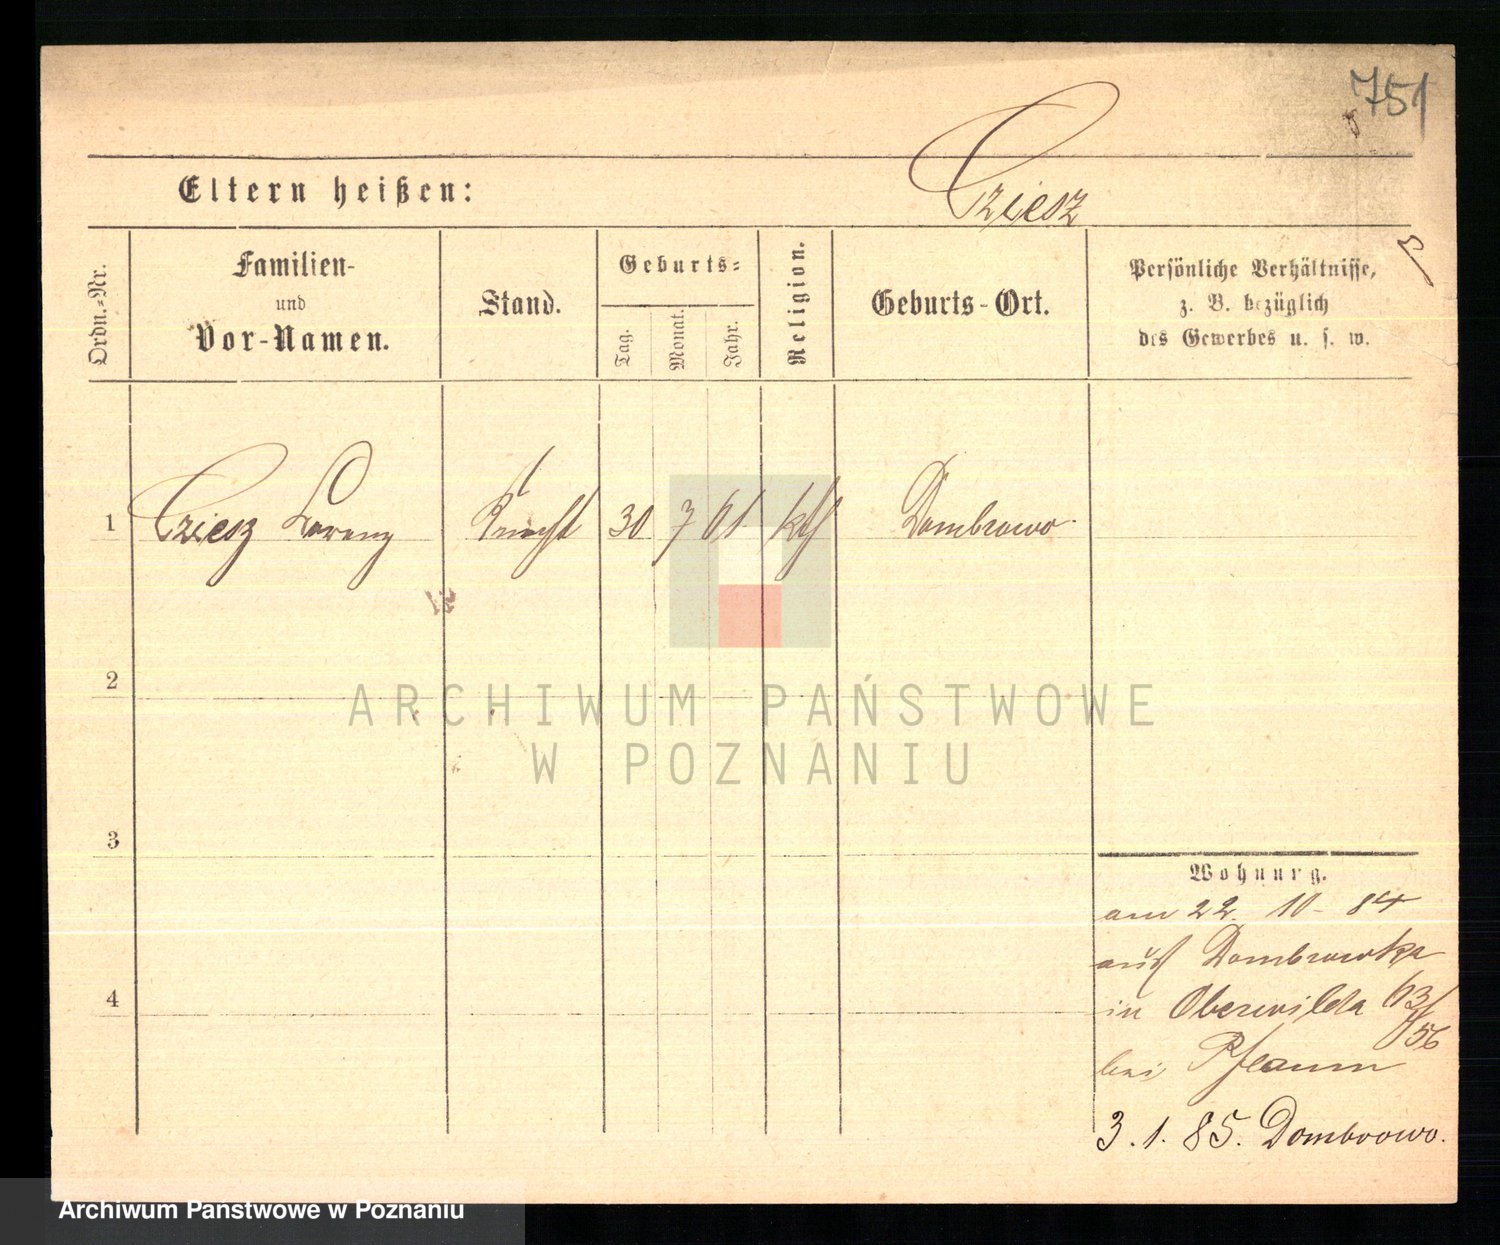 751
Eltern heißen:
Cziesz
Ordn.-Nr.
Familien-
und
Vor-Namen.
Stand.
Geburts-
Tag.
Monat.
Jahr.
Religion.
Geburts-Ort.
Persönliche Verhältnisse,
z. B. bezüglich
des Gewerbes u. s. w.
1 Cziesz Lorenz Knecht 30 7 61 kth Dombrowo
2
3
4
Wohnung.
am 22. 10 - 84
aus Dombrowka
in Oberwilda 63/56
bei Pflaum
3. 1. 85. Dombrowo.
ARCHIWUM PAŃSTWOWE
W POZNANIU
Archiwum Państwowe w Poznaniu